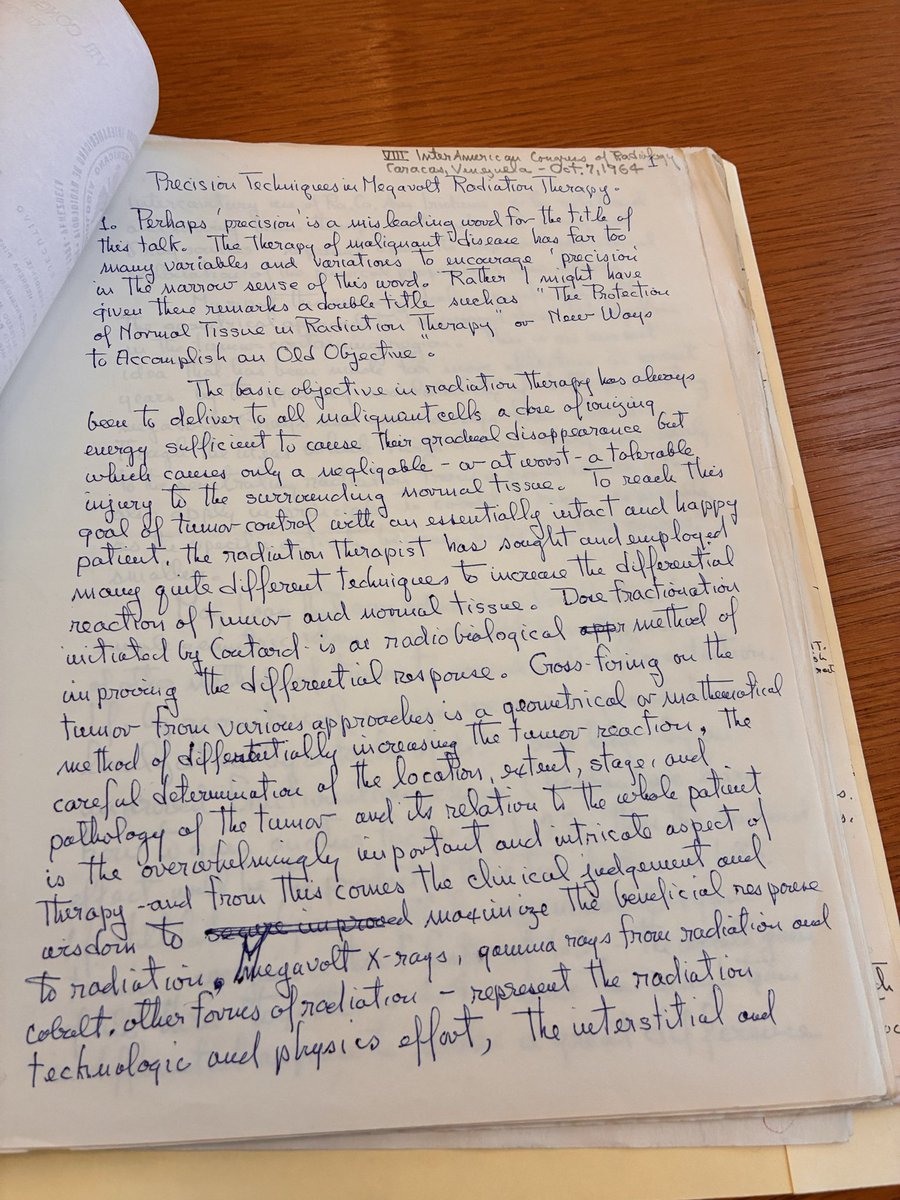 VIII InterAmerican Congress of Radiology
Caracas, Venezuela - Oct. 7, 1964
Precision Techniques in Megavolt Radiation Therapy.
1. Perhaps 'precision' is a misleading word for the title of
this talk. The Therapy of malignant disease has far too
many variables and variations to encourage 'precision'
in the narrow sense of this word. Rather I might have
given these remarks a double title such as "The Protection
of Normal Tissue in Radiation Therapy" or New Ways
to Accomplish an Old Objective".
The basic objective in radiation Therapy has always
been to deliver to all malignant cells a dose of ionizing
energy sufficient to cause their gradual disappearance but
which causes only a negligable - or at worst - a tolerable
injury to the surrounding normal tissue. To reach this
goal of tumor control with an essentially intact and happy
patient, the radiation Therapist has sought and employed
many quite different techniques to increase the differential
reaction of tumor and normal tissue. Dose fractionation
initiated by Coutard is a radiobiological appr method of
improving the differential response. Cross-firing on the
tumor from various approaches is a geometrical or mathematical
method of differentially increasing the tumor reaction. The
careful determination of the location, extent, stage, and
pathology of the tumor and its relation to the whole patient
is the overwhelmingly important and intricate aspect of
Therapy - and from this comes the clinical judgement and
wisdom to improved maximize the beneficial response
to radiation. Megavolt x-rays, gamma rays from radiation and
cobalt. other forms of radiation - represent the radiation
technologic and physics effort, The interstitial and